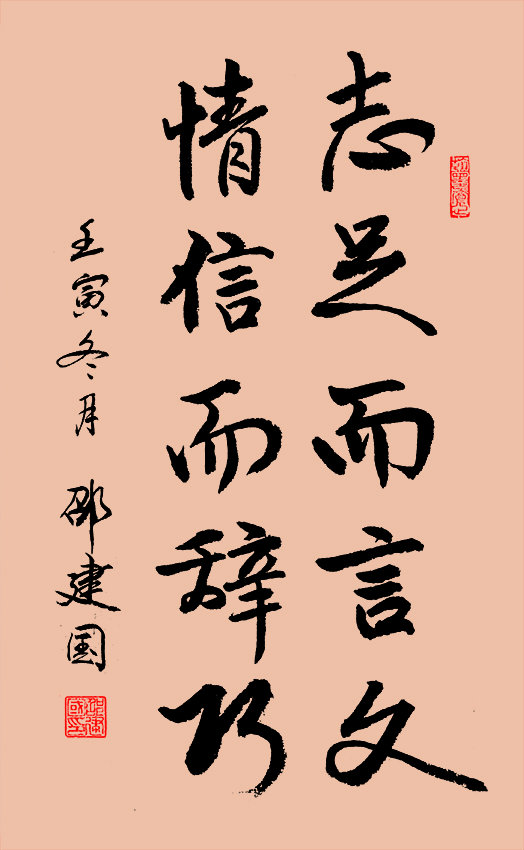 志足而言文
情信而辞巧
壬寅冬月 邵建国